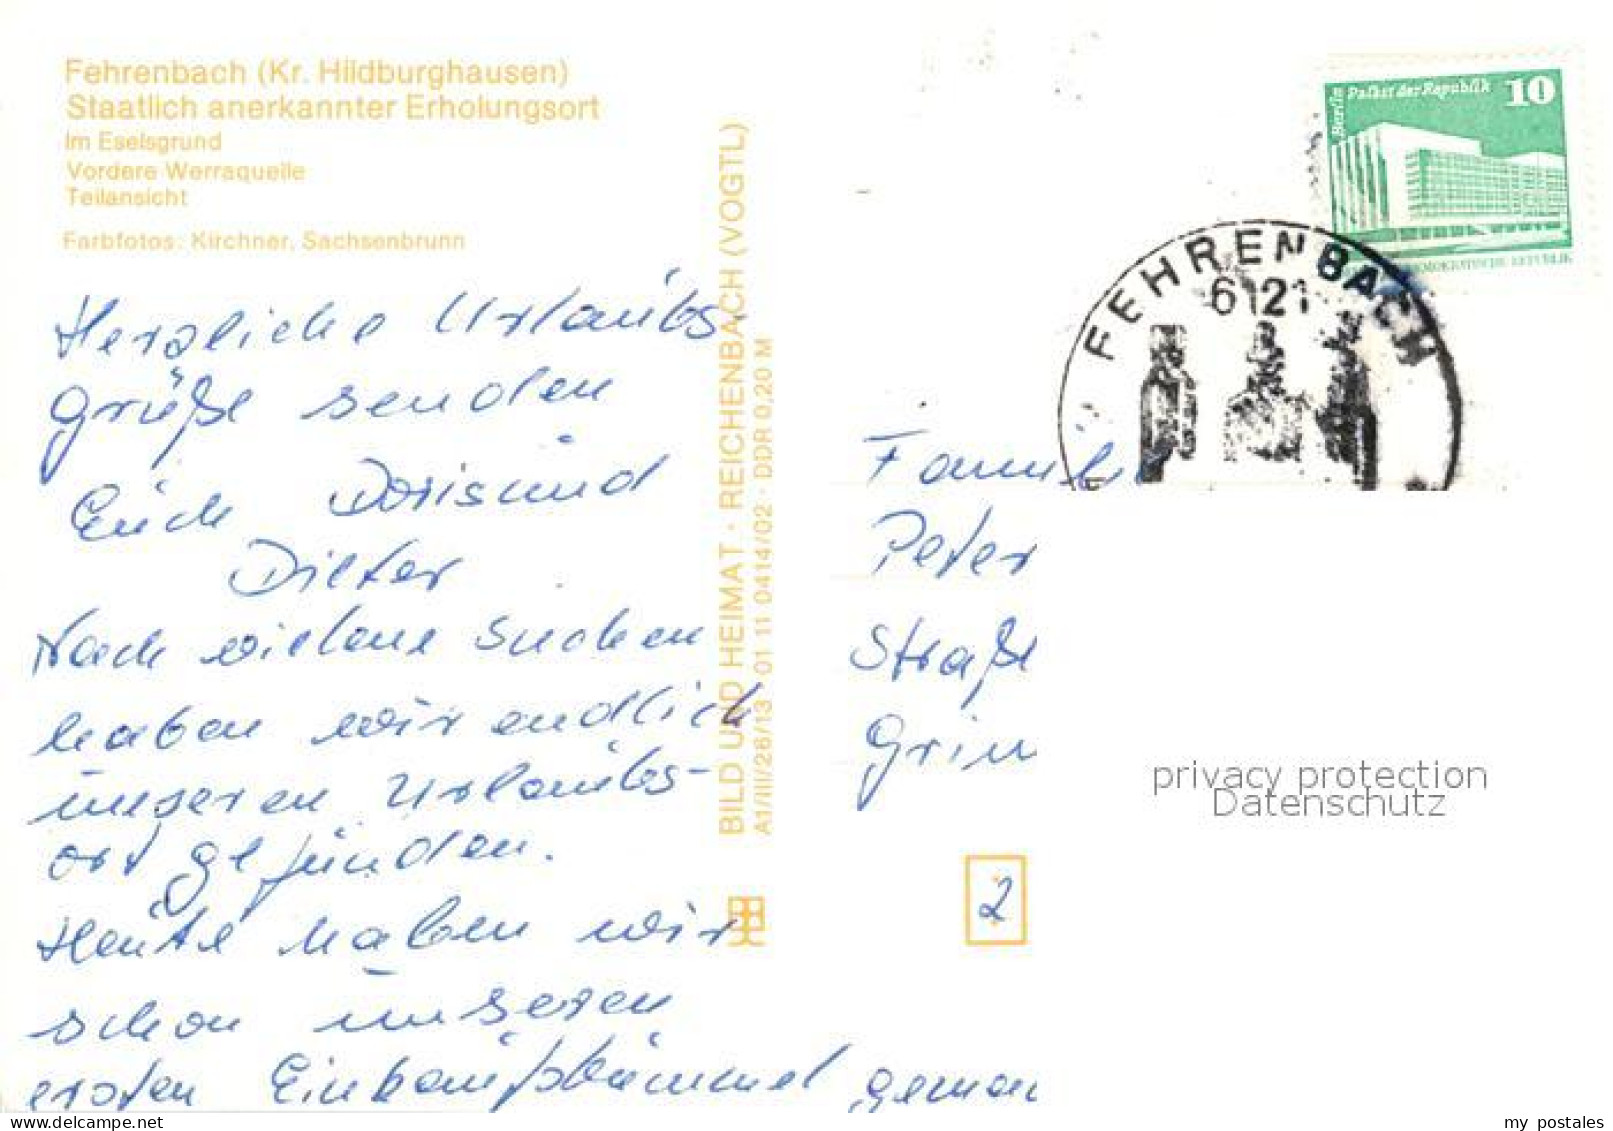 Fehrenbach (Kr. Hildburghausen)
Staatlich anerkannter Erholungsort
Im Eselsgrund
Vordere Werraquelle
Teilansicht
Farbfotos: Kirchner, Sachsenbrunn
Herzliche Urlaubs-
grüße senden
Euch Doris und
Dieter
Nach vielem Suchen
haben wir endlich
unseren Urlaubs-
ort gefunden.
Heute haben wir
schon unseren
ersten Einkaufsbummel gemac
BILD UND HEIMAT · REICHENBACH (VOGTL)
A1/III/26/13 01 11 0414/02 · DDR 0,20 M
Berlin
Palast der Republik
10
DEMOKRATISCHE REPUBLIK
FEHRENBACH
6121
Famili
Peter
Straße
Grim
2
privacy protection
Datenschutz
my_postales